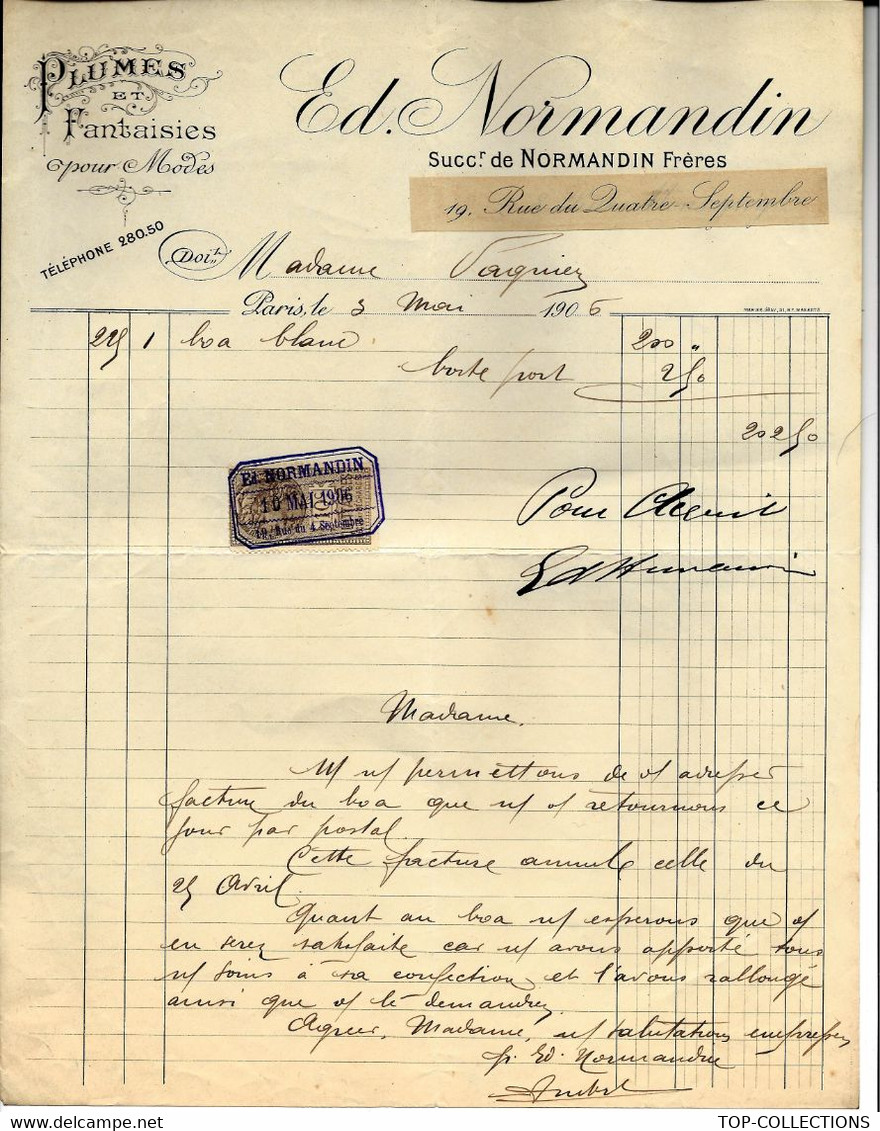 PLUMES
ET
Fantaisies
pour Modes
TÉLÉPHONE 280.50
Ed. Normandin
Succr de NORMANDIN Frères
19, Rue du Quatre-Septembre
Doit
Madame
Paris, le 3 Mai 1906
225 1 boa blanc 200 "
boite port 2 50
202 50
Ed. NORMANDIN
10 MAI 1906
19, Rue du 4 Septembre
Pour Acquit
Ed Normandin
Madame,
N/ n/ permettons de v/ adresser
facture du boa que n/ v/ retournons ce
jour par postal.
Cette facture annule celle du
25 Avril.
Quant au boa n/ esperons que v/
en serez satisfaite car n/ avons apporté tous
n/ soins à sa confection et l'avons rallongé
ainsi que v/ le demandez
Agréer, Madame, n/ salutations empressées
p. Ed. Normandin
TOP-COLLECTIONS